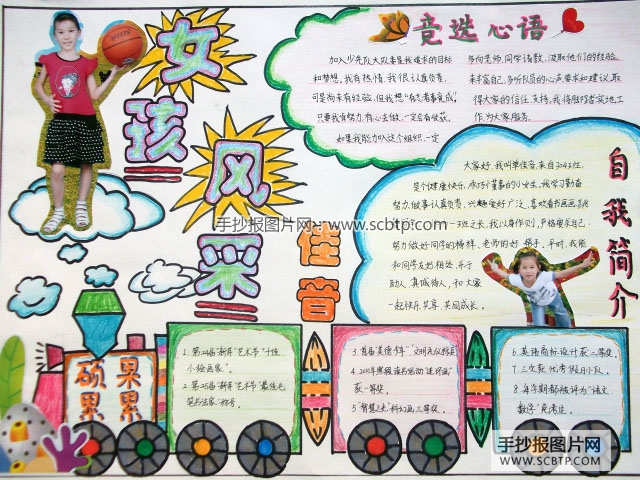 女孩风采
佳音
竞选心语
加入少先队大队委是我追求的目标
和梦想。我有热情,我很认真负责,
可是尚未有经验,但我想"有志者事竟成",
只要我有努力,有心去做,一定会收获。
如果我能加入这个组织,一定
多向老师,同学请教,汲取他们的经验,
来丰富自己,多听队员的心声要求和建议,取
得大家的信任、支持,我将脚踏实地工
作,为大家服务。
自我简介
大家好,我叫单佳音,来自304班,
是个健康快乐,乖巧懂事的小女生。我学习勤奋
努力,做事认真负责,兴趣爱好广泛,喜欢看书画画
一班之长,我以身作则,严格要求自己,
努力做好同学的榜样,老师的好帮手。平时,我能
和同学友好相处,乐于
助人,真诚待人,和大家
一起快乐共享,共同成长。
手抄报图片网:www.scbtp.com
硕果累累
1.第24届"新年"艺术节"十佳
小绘画家"。
2.第25届"新年"艺术节"最佳毛
笔书法家"称号。
获一等奖。
5."智慧之光"科幻画三等奖。
6.英语商标设计获二等奖。
7.三次获优秀假日小队。
8.每学期都被评为"语文
数学"免考生。
手抄报图片网
WWW.SCBTP.COM